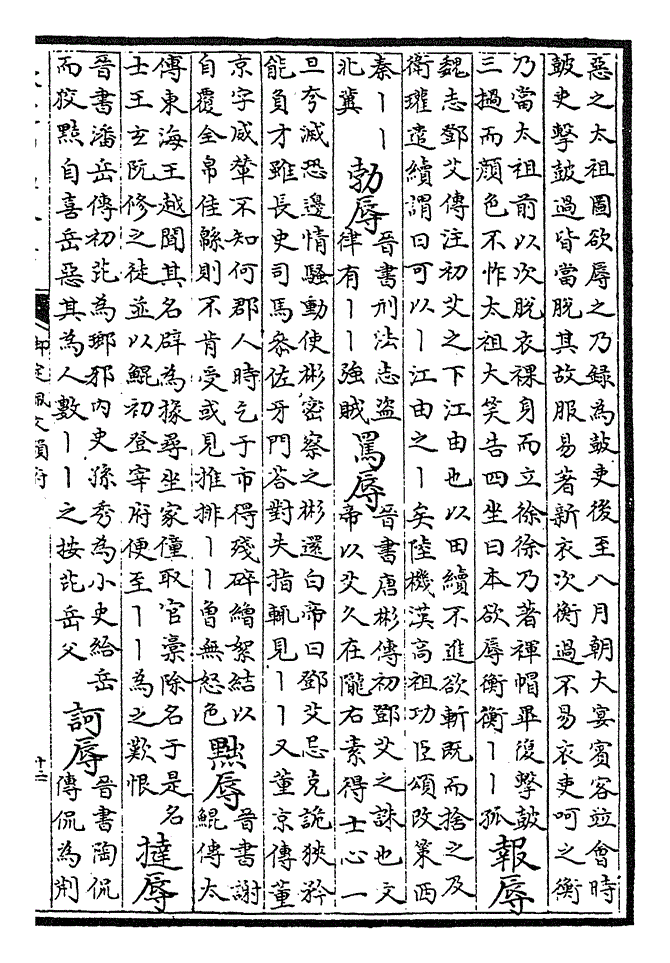 惡之太祖圖欲辱之乃録為鼓吏後至八月朝大宴賓客並會時
鼓史擊鼓過皆當脱其故服易著新衣次衡過不易衣吏呵之衡
乃當太祖前以次脱衣裸身而立徐徐乃著褌帽畢復擊鼓
三撾而顔色不怍太祖大笑告四坐曰本欲辱衡衡丨丨孤
報辱
魏志鄧艾傳注初艾之下江由也以田續不進欲斬既而捨之及
衛瓘遣續謂曰可以丨江由之丨矣陸機漢高祖功臣頌改策西
秦丨丨
北冀
勃辱
晉書刑法志盜
律有丨丨強賊
罵辱
晉書唐彬傳初鄧艾之誅也文
帝以艾久在隴右素得士心一
旦夸滅恐邊情騷動使彬密察之彬還白帝曰鄧艾忌克詭狹矜
能負才雖長史司馬參佐牙門答對失指輒見丨丨又董京傳董
京字威輦不知何郡人時乞于市得殘碎繒絮結以
自覆全帛佳緜則不肯受或見推排丨丨曾無怒色
黜辱
晉書謝
鯤傳太
傳東海王越聞其名辟為掾尋坐家僮取官稾除名于是名
士王玄阮修之徒並以鯤初登宰府便至丨丨為之歎恨
撻辱
晉書潘岳傳初芘為瑯邪内史孫秀為小史給岳
而狡黠自喜岳惡其為人數丨丨之按芘岳父
訶辱
晉書陶侃
傳侃為荆
御定佩文韻府
十二